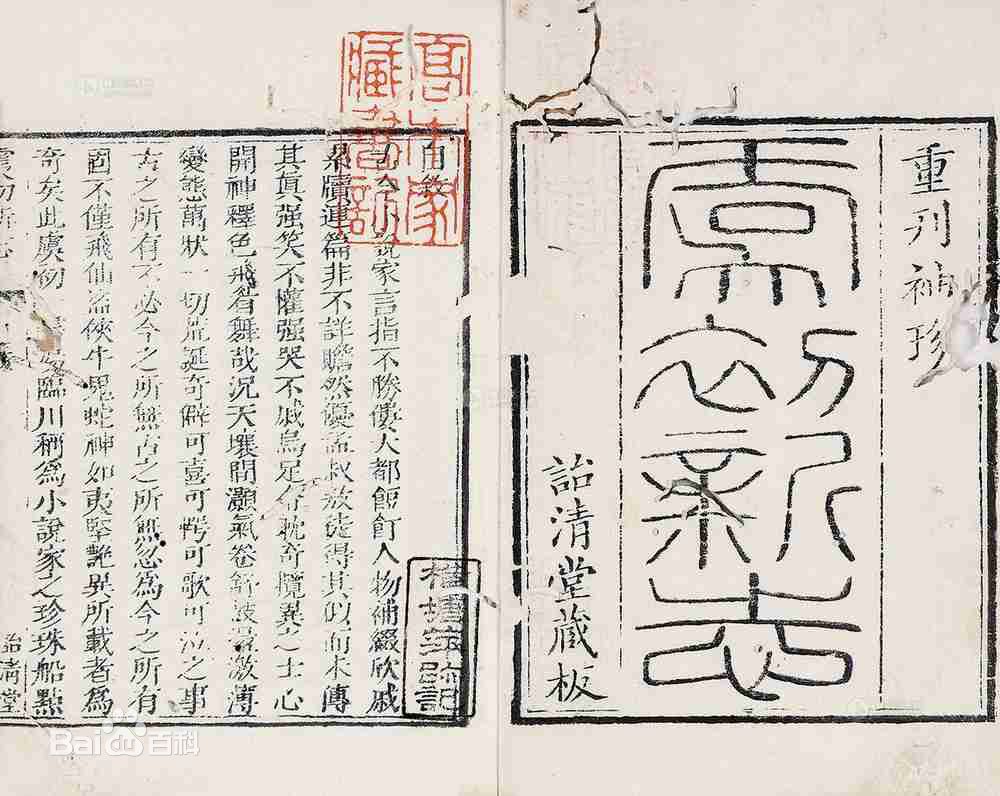 重刊袖珍
虞初新志
詒清堂藏板
自敘
小說家言指不勝僂大都餖飣人物補綴欣戚
累牘連篇非不詳贍然優孟叔敖徒得其似而未傳
其真强笑不懽强哭不戚烏足令耽奇攬異之士心
開神釋色飛眉舞哉況天壤間灝氣卷舒鼓盪激薄
變態萬狀一切荒誕奇僻可喜可愕可歌可泣之事
古之所有不必今之所無古之所無忽爲今之所有
固不僅飛仙盜俠牛鬼蛇神如夷堅艷異所載者爲
奇矣此虞初一書湯臨川稱爲小說家之珍珠船點
虞初新志
詒清堂
高木家藏書記
Bai百科